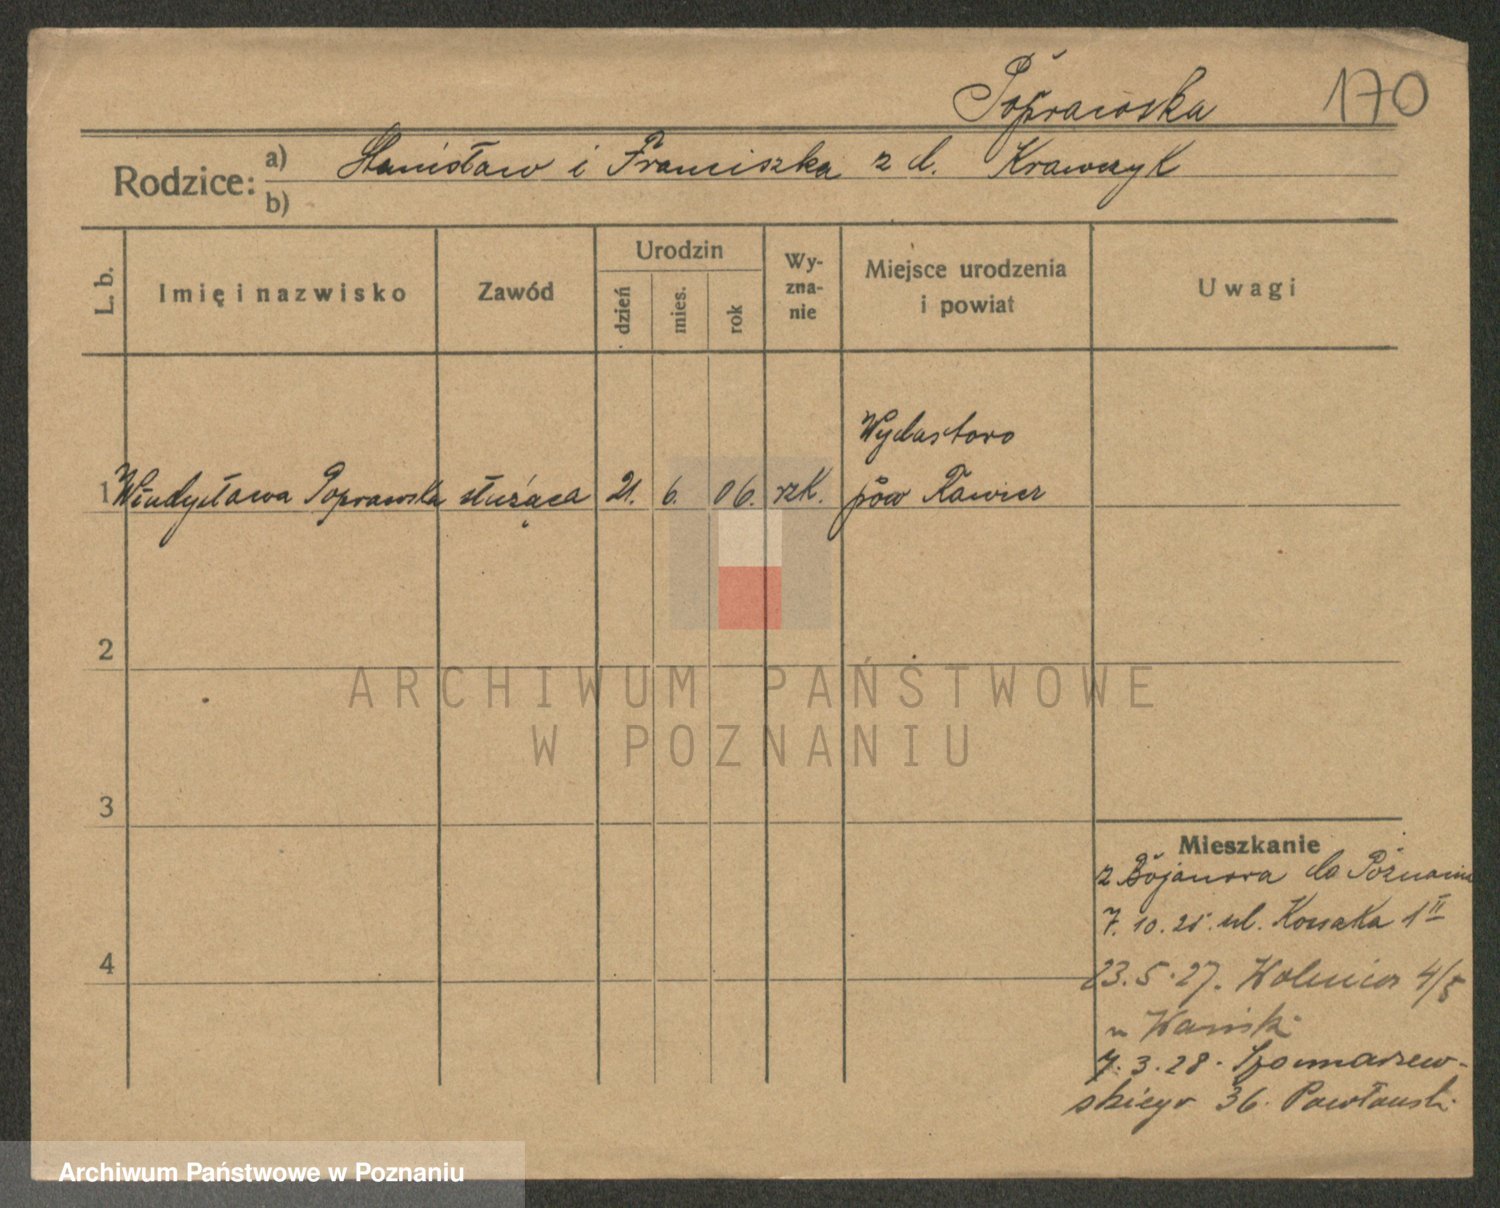 Poprawska 170
Rodzice: a) Stanisław i Franciszka z d. Krawczyk
b)
L. b.
Imię i nazwisko
Zawód
Urodzin
dzień
mies.
rok
Wy-
zna-
nie
Miejsce urodzenia
i powiat
Uwagi
Wydastowo
1 Władysława Poprawska służąca 21. 6. 06. rzk. pow Rawicz
2
3
4
Mieszkanie
z Bojanowa do Poznania
7. 10. 25. ul. Kossaka 1 II
23. 5. 27. 4/5
u
7. 3. 28.
skiego 36.
ARCHIWUM PAŃSTWOWE
W POZNANIU
Archiwum Państwowe w Poznaniu